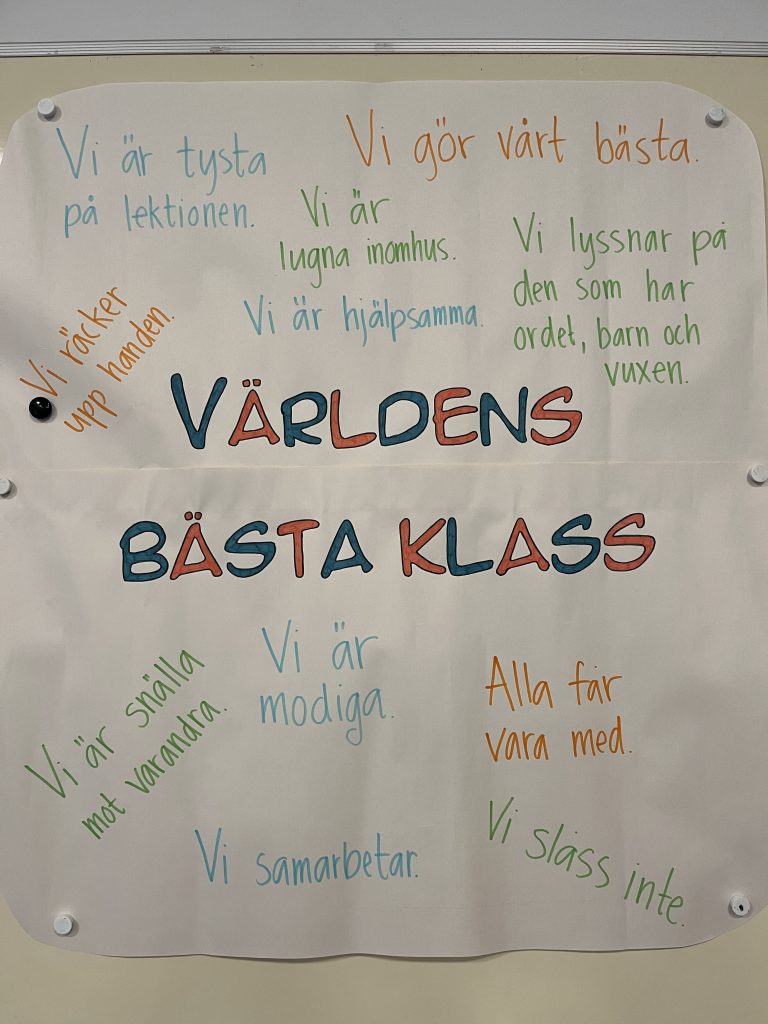 Vi är tysta
på lektionen.
Vi gör vårt bästa.
Vi är
lugna inomhus.
Vi lyssnar på
den som har
ordet, barn och
vuxen.
Vi är hjälpsamma.
Vi räcker
upp handen.
VÄRLDENS
BÄSTA KLASS
Vi är snälla
mot varandra.
Vi är
modiga.
Alla får
vara med.
Vi samarbetar.
Vi slåss inte.